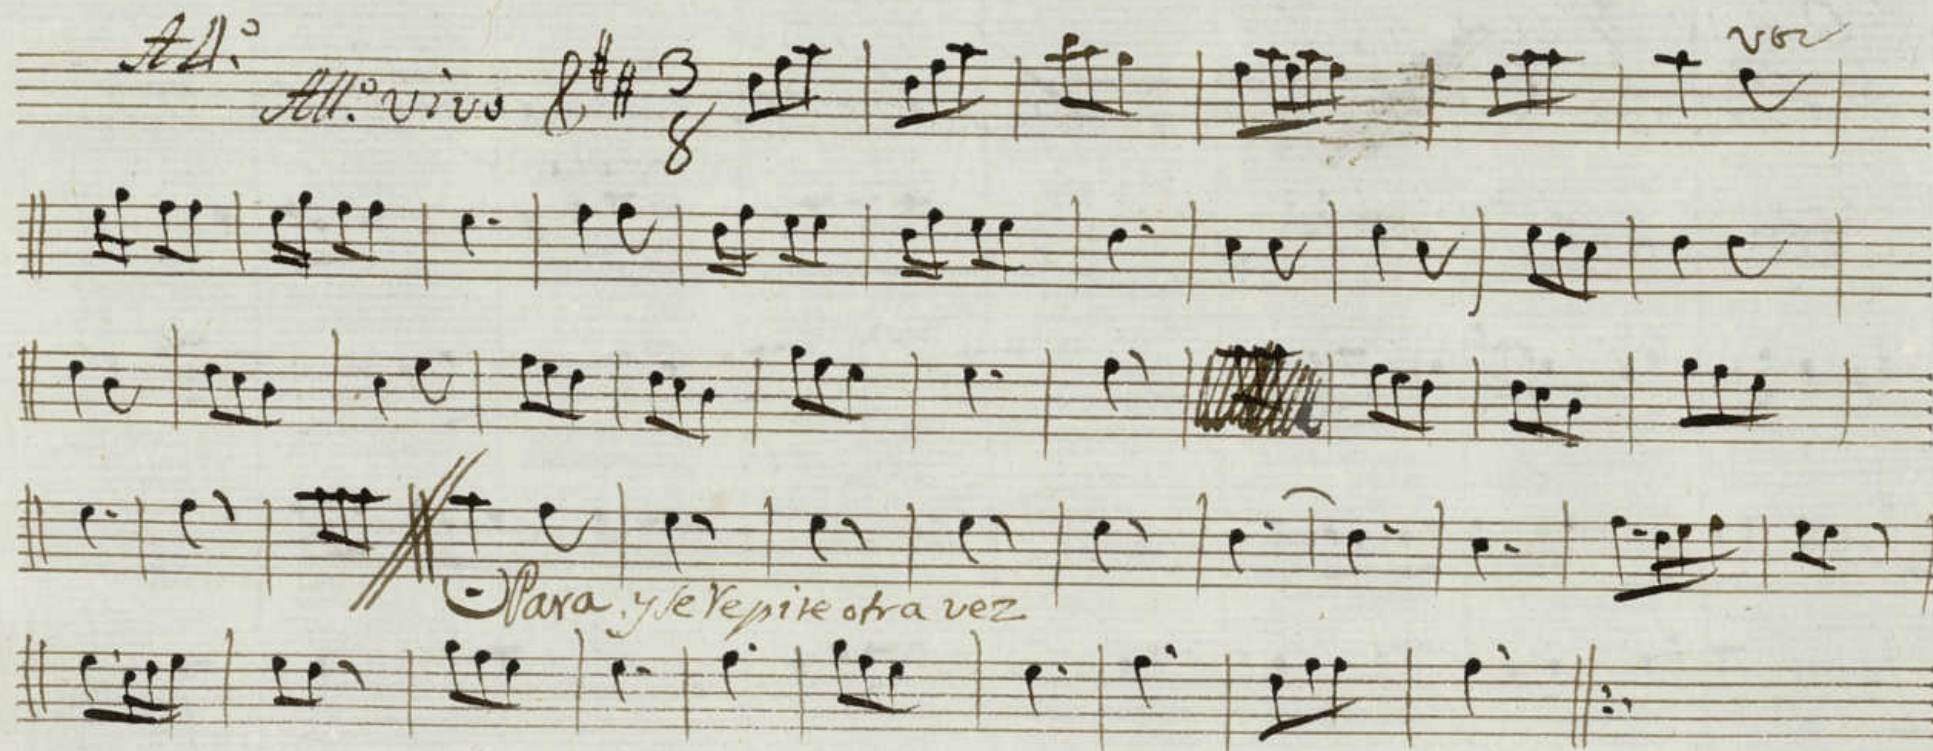 All.º
All.º vivo 3 8 voz
Para y se repite otra vez